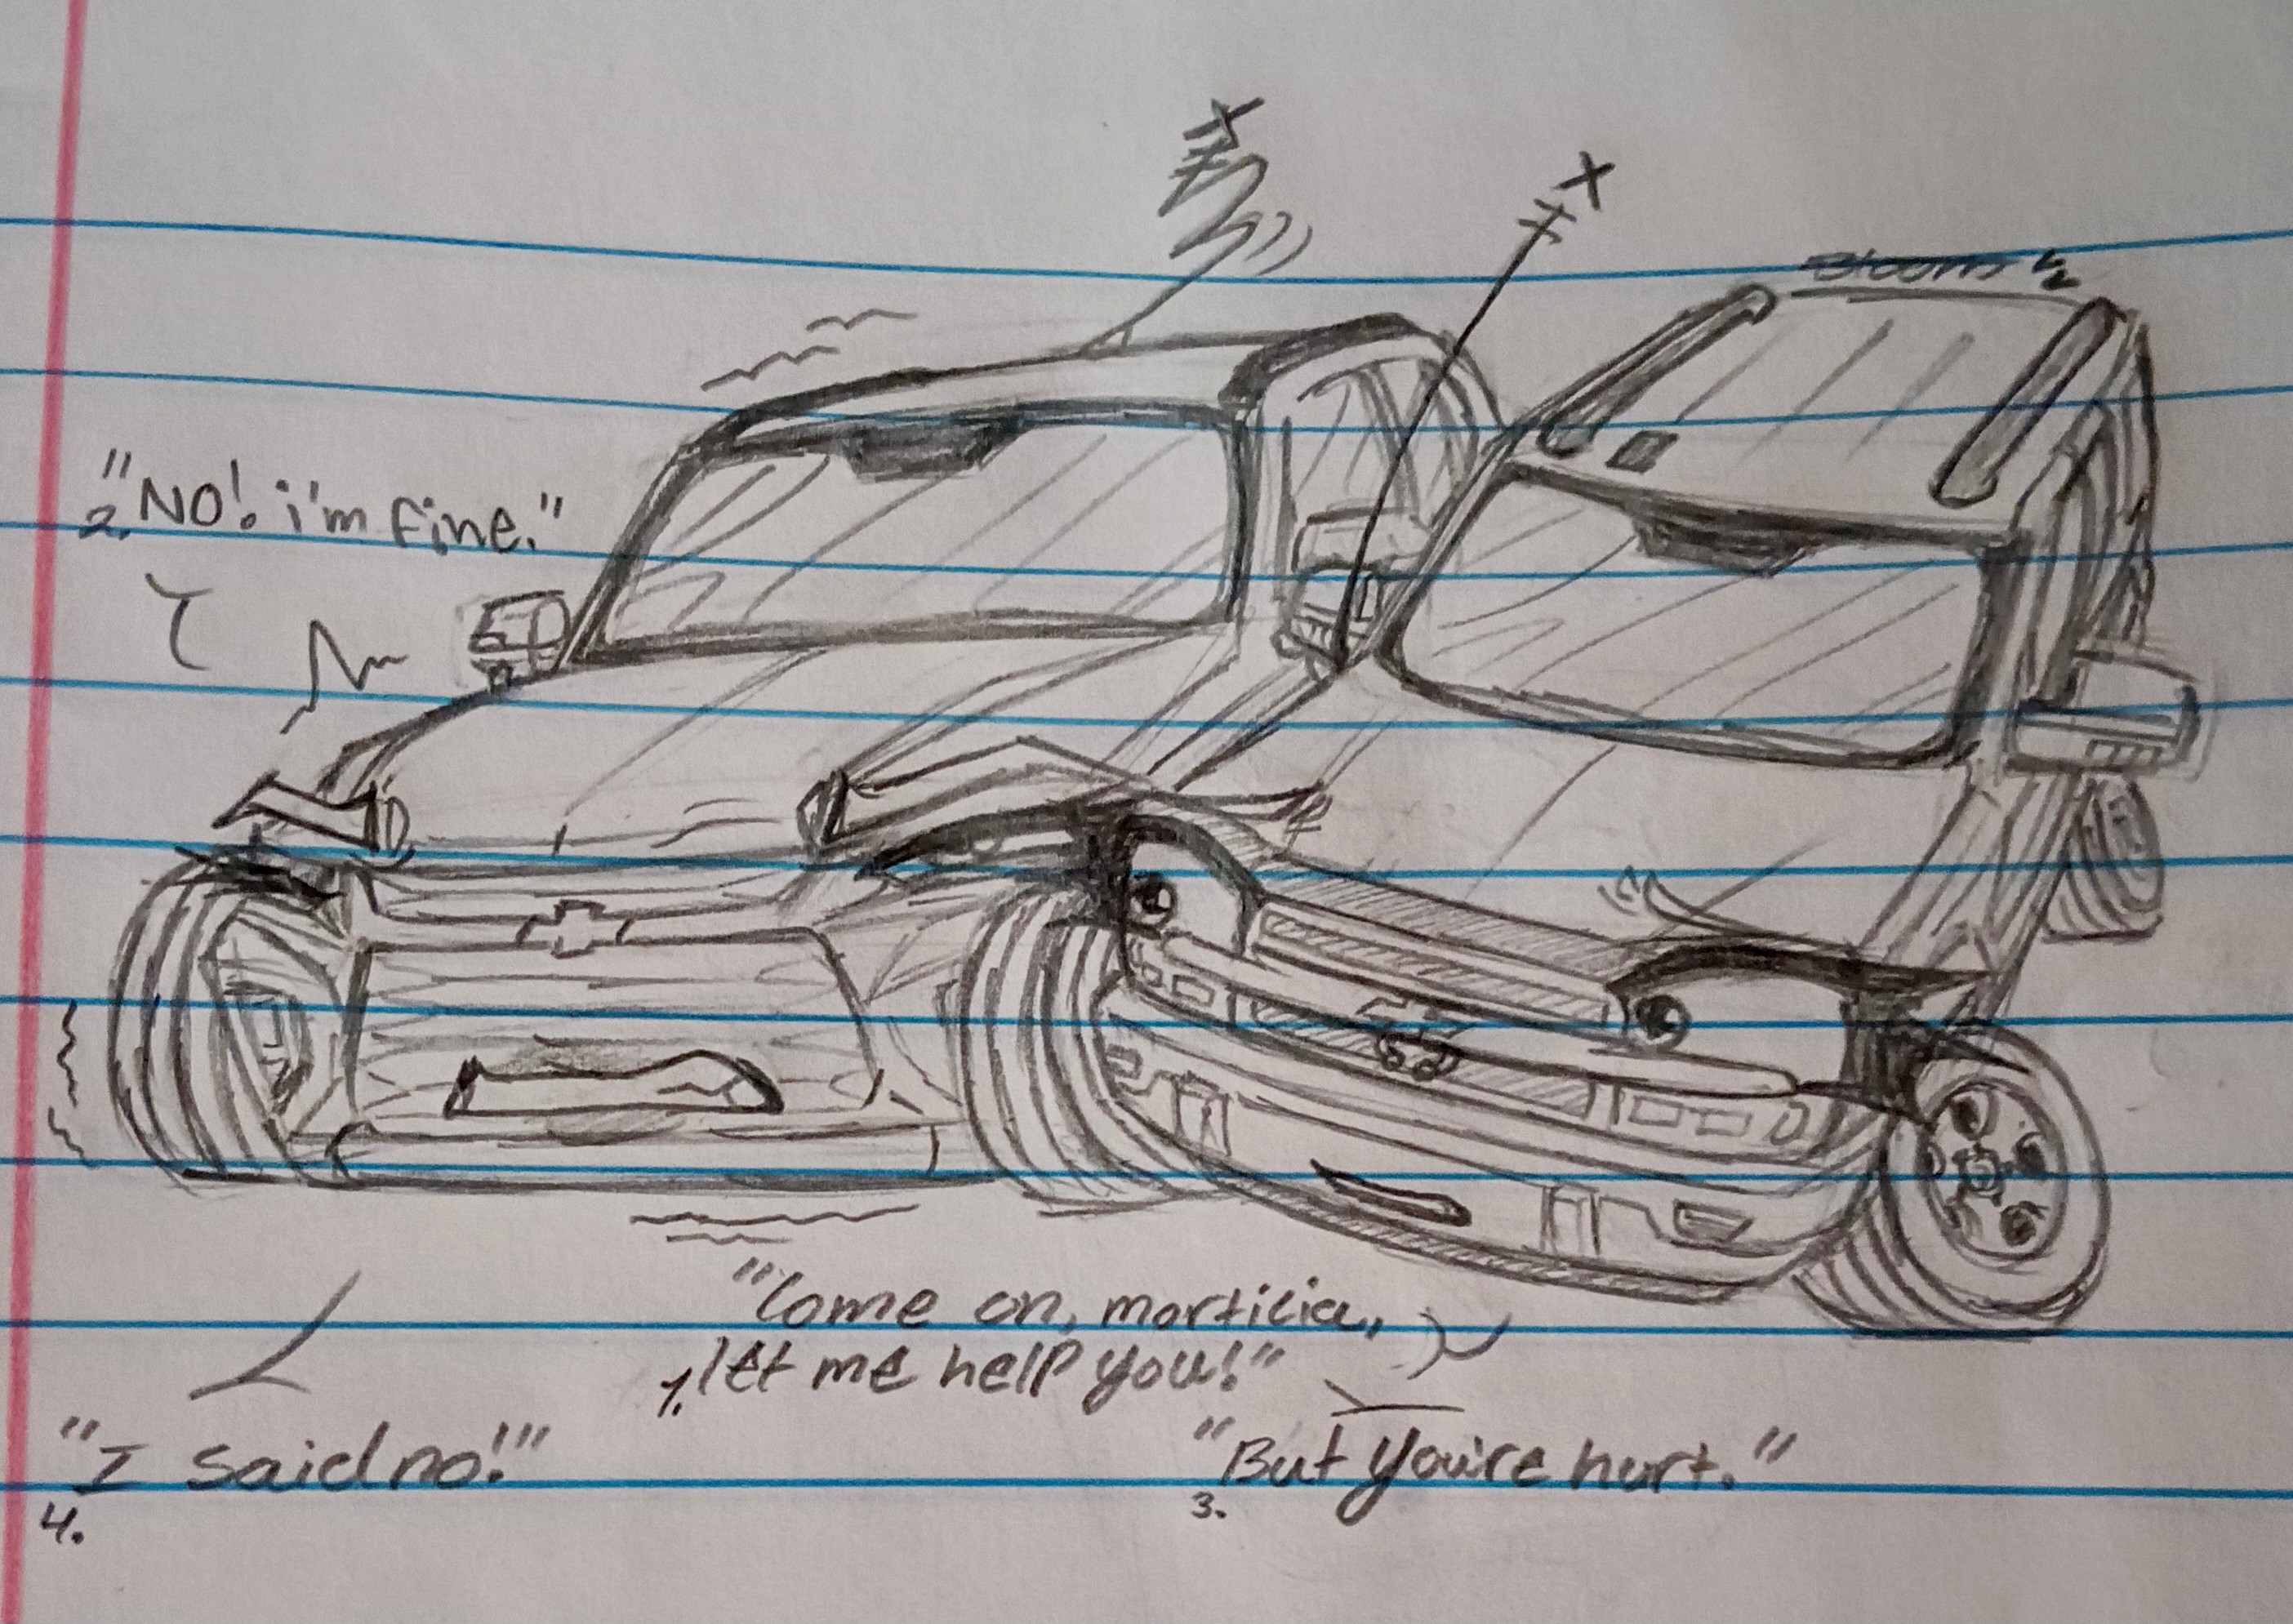 2. "NO! i'm fine."
"Come on, morticia,
1. let me help you!"
"But You're hurt."
3.
"I said no!"
4.